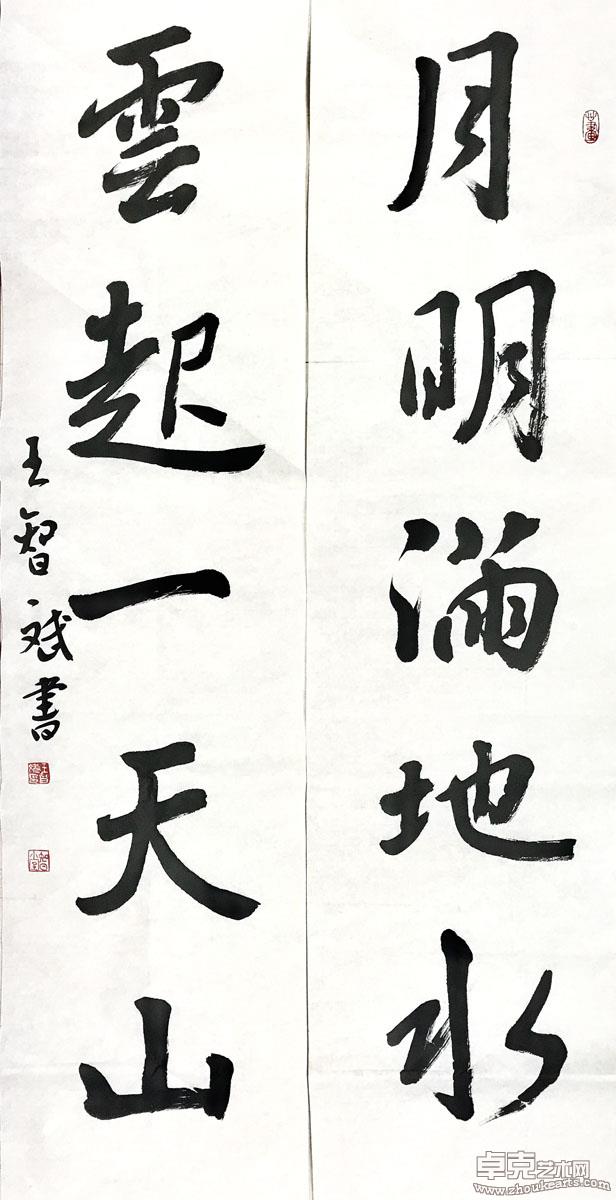 月明满地水
雲起一天山
王智斌書
卓克艺术网
www.zhoukearts.com